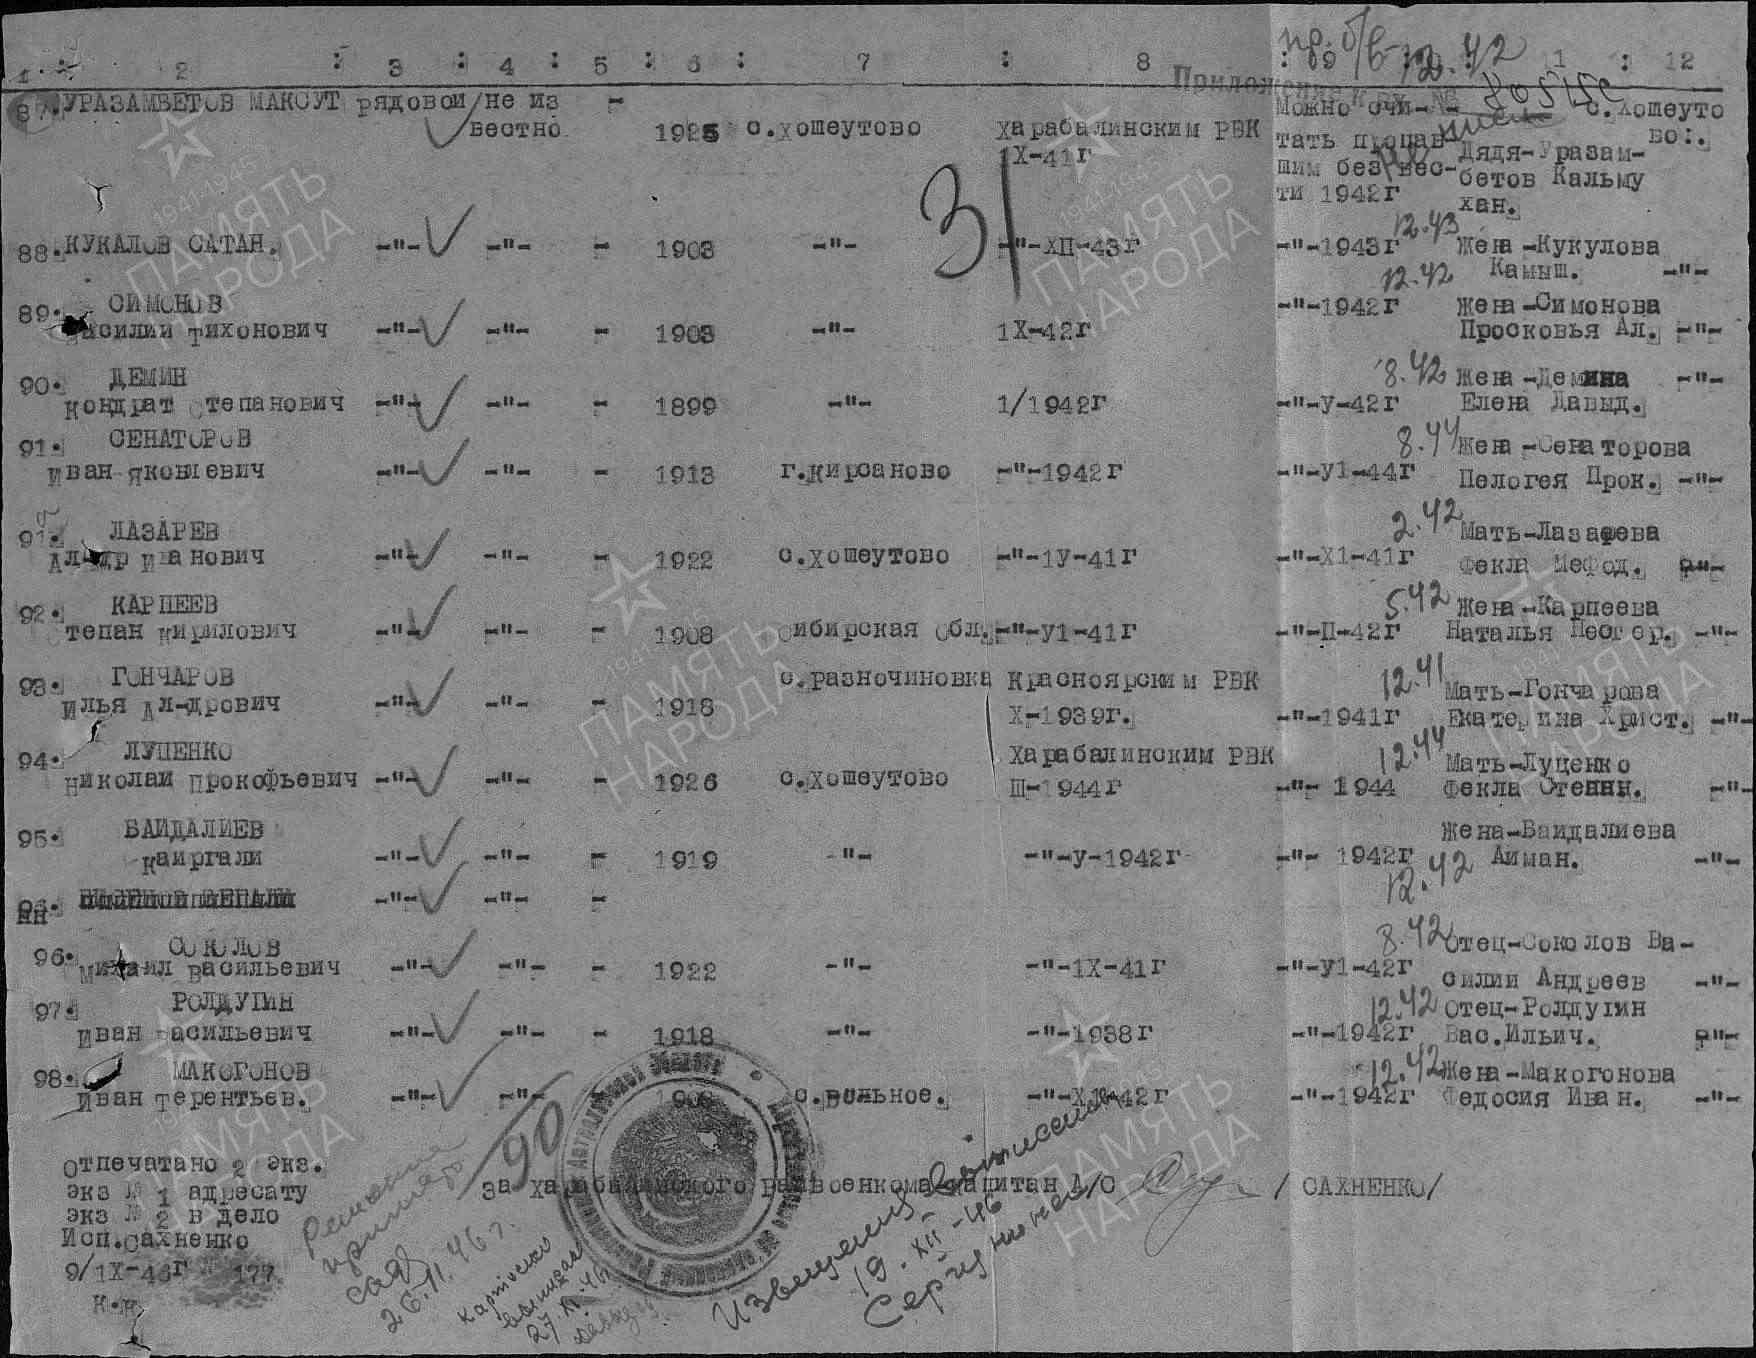 пр. б/в 12.42
1 : 2 : 3 : 4 : 5 : 6 : 7 : 8 : 9 : 1 : 12
Приложение к вх. №
87. УРАЗАМБЕТОВ МАКСУТ рядовой не из - Можно счи- - с.Хошеуто
вестно 1925 с.хошеутово харабалинским РВК тать пропав во:.
1Х-41г шим без вес- Дядя-Уразам-
ти 1942г бетов Кальму
хан.
31
12.43
88. КУКАЛОВ САТАН. -"- -"- - 1903 -"- -"-ХП-43г -"-1943г Жена-Кукулова
12.42 Камыш. -"-
89. СИМОНОВ -"-1942г Жена-Симонова
Василий Тихонович -"- -"- - 1903 -"- 1Х-42г Просковья Ал. -"-
90. ДЕМИН 8.42 Жена-Демина -"-
Кондрат Степанович -"- -"- - 1899 -"- 1/1942г -"-У-42г Елена Давыд.
91. СЕНАТОРОВ 8.44 Жена-Сенаторова
Иван Яковлевич -"- -"- - 1913 г.Кирсаново -"-1942г -"-У1-44г Пелогея Прок. -"-
91.а ЛАЗАРЕВ 2.42 Мать-Лазарева
Ал-др Иванович -"- -"- - 1922 с.хошеутово -"-1У-41г -"-Х1-41г Фекла Мефод. -"-
92. КАРПЕЕВ 5.42 Жена-Карпеева
Степан Кирилович -"- -"- - 1908 Сибирская Обл. -"-У1-41г -"-П-42г Наталья Нестер. -"-
93. ГОНЧАРОВ с.разночиновка Красноярским РВК 12.41 Мать-Гончарова
Илья Ал-дрович -"- -"- - 1918 Х-1939г. -"-1941г Екатерина Христ. -"-
94. ЛУЦЕНКО Харабалинским РВК 12.44 Мать-Луценко
Николай Прокофьевич -"- -"- - 1926 с.хошеутово Ш-1944г -"- 1944 Фекла -"-
95. БАЙДАЛИЕВ Жена-Байдалиева
Каиргали -"- -"- - 1919 -"- -"-У-1942г -"- 1942г Айман. -"-
12.42
-"- -"- -
96. СОКОЛОВ 8.42 Отец-Соколов Ва-
Михаил Васильевич -"- -"- - 1922 -"- -"-1Х-41г -"-У1-42г силий Андреев -"-
97. РОЛДУГИН 12.42 Отец-Ролдугин
Иван Васильевич -"- -"- - 1918 -"- -"-1938г -"-1942г Вас.Ильич. -"-
98. МАКОГОНОВ 12.42 Жена-Макогонова
Иван Терентьев. -"- -"- с.вольное. -"-Х1-42г -"-1942г Федосия Иван. -"-
90
Отпечатано 2 экз.
экз № 1 адресату за харабалинского райвоенкома капитан А/С / САХНЕНКО/
экз № 2 в дело
Исп.Сахненко
9/1Х-46г № 177
к.н
26.11.46г.
27.XI.46
19.XII-46